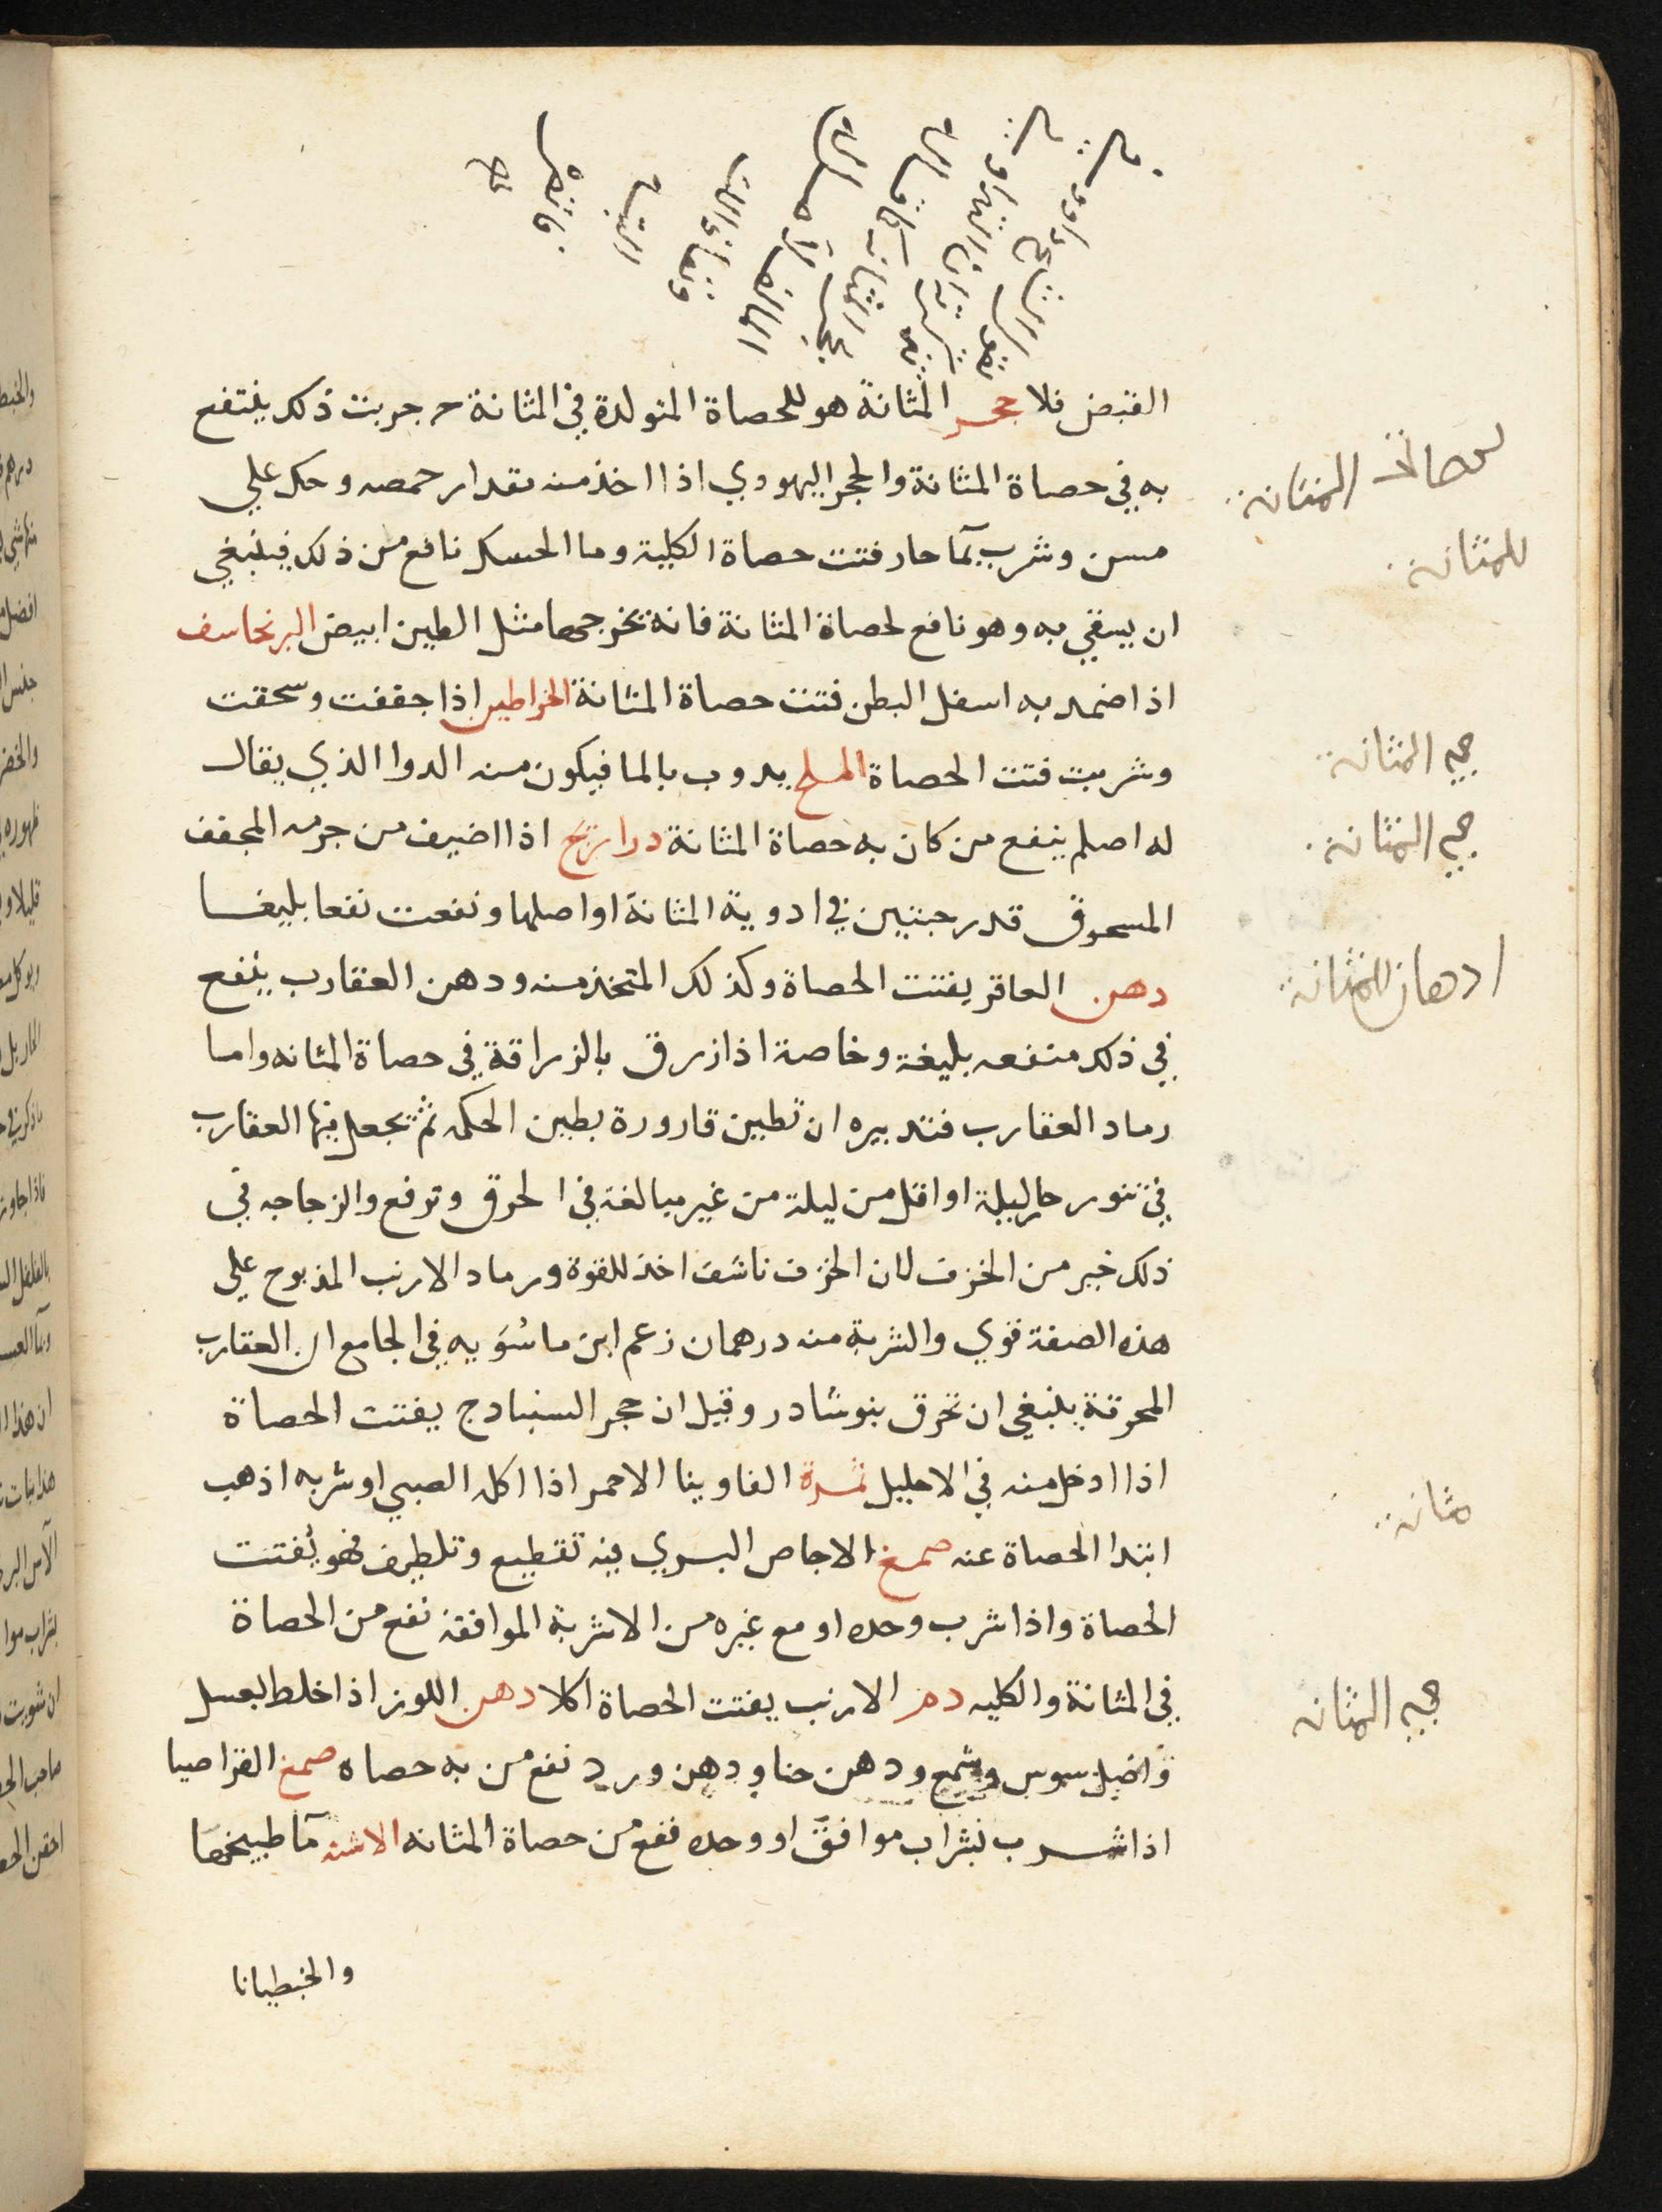 القبض فلا حجر المثانة هو للحصاة المتولدة في المثانة جربت ذلك ينتفع
به في حصاة المثانة والحجر اليهودي اذا اخذ منه مقدار حمصه وحك علي
مسن وشرب بمآ حار فتت حصاة الكلية وما الحسك نافع من ذلك فينبغي
ان يسقي به وهو نافع لحصاة المثانة فانه تخرجها مثل الطين ابيض البرنجاسف
اذا ضمد به اسفل البطن فتت حصاة المثانة الخراطين اذا جففت وسحقت
وشربت فتت الحصاة الملح يدوب بالما فيكون منه الدوا الذي يقال
له اصلم ينفع من كان به حصاة المثانة دراريح اذا اضيف من جرمه المجفف
المسحوق قدر حبتين في ادوية المثانة او اصلها ونفعت نفعا بليغا
دهن العاقر يفتت الحصاة وكذلك المتخذ منه ودهن العقارب ينفع
في ذلك منفعه بليغة وخاصة اذا زرق بالزراقة في حصاة المثانه واما
رماد العقارب فتدبيره ان تطين قارورة بطين الحكمه ثم تجعل فيها العقارب
في تنور حار ليلة او اقل من ليلة من غير مبالغة في الحرق وترفع والزجاجه في
ذلك خير من الخزف لان الخزف ناشف اخذ للقوة ورماد الارنب المذبوح علي
هذه الصفة قوي والشربة منه درهمان زعم ابن ماسُوَيه في الجامع ان العقارب
المحرقة ينبغي ان تحرق بنوشادر وقيل ان حجر السنبادج يفتت الحصاة
اذا ادخل منه في الاحليل ثمرة الفاوينا الاحمر اذا اكله الصبي او شربه اذهب
ابتدا الحصاة عنه صمغ الاجاص البري فيه تقطيع وتلطيف فهو يُفتت
الحصاة واذا شرب وحده او مع غيره من الاشربة الموافقة نفع من الحصاة
في المثانة والكليه دم الارنب يفتت الحصاة اكلا دهن اللوز اذا خلط بعسل
واصل سوس وشمع ودهن حنا ودهن ورد نفع من به حصاه صمغ القراصيا
اذا شرب بشراب موافق او وحده نفع من حصاة المثانه الاشنه مآ طبيخها
والجنطيانا
للمثانه
حجر المثانة
حجر المثانة
ادهان للمثانة
مثانه
حجر المثانه